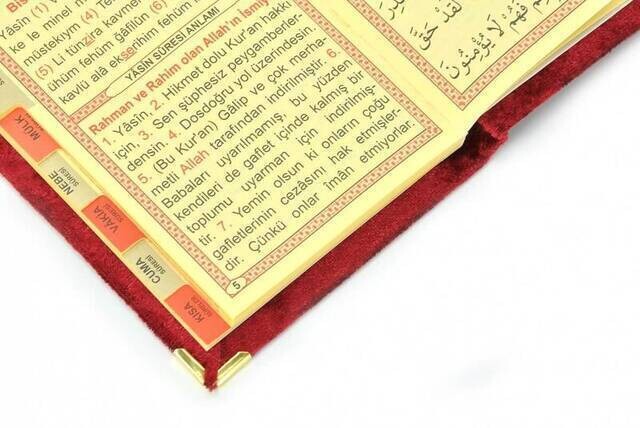 Yâsîn (1)
ke le minel
müstekıym (4)
(5) Li tünzira kavmen
ühüm fehüm ğâfilûn (6)
kavlü alâ ekserihim fehüm
YASİN SÛRESİ ANLAMI
Rahman ve Rahim olan Allah'ın ismiy
1. Yâsîn, 2. Hikmet dolu Kur'an hakkı
için, 3. Sen şüphesiz peygamberler-
densin. 4. Dosdoğru yol üzerindesin.
5. (Bu Kur'an) Gâlip ve çok merha-
metli Allah tarafından indirilmiştir. 6.
Babaları uyarılmamış, bu yüzden
kendileri de gaflet içinde kalmış bir
toplumu uyarman için indirilmiş-
tir. 7. Yemin olsun ki onların çoğu
gafletlerinin cezâsını hak etmişler-
dir. Çünkü onlar îmân etmiyorlar.
5
لَقَدْ حَقَّ
فَهُمْ لَا يُؤْمِنُونَ
MÜLK
SÛRESİ
NEBE
SÛRESİ
VAKIA
SÛRESİ
CUMA
SÛRESİ
KISA
SÛRELER